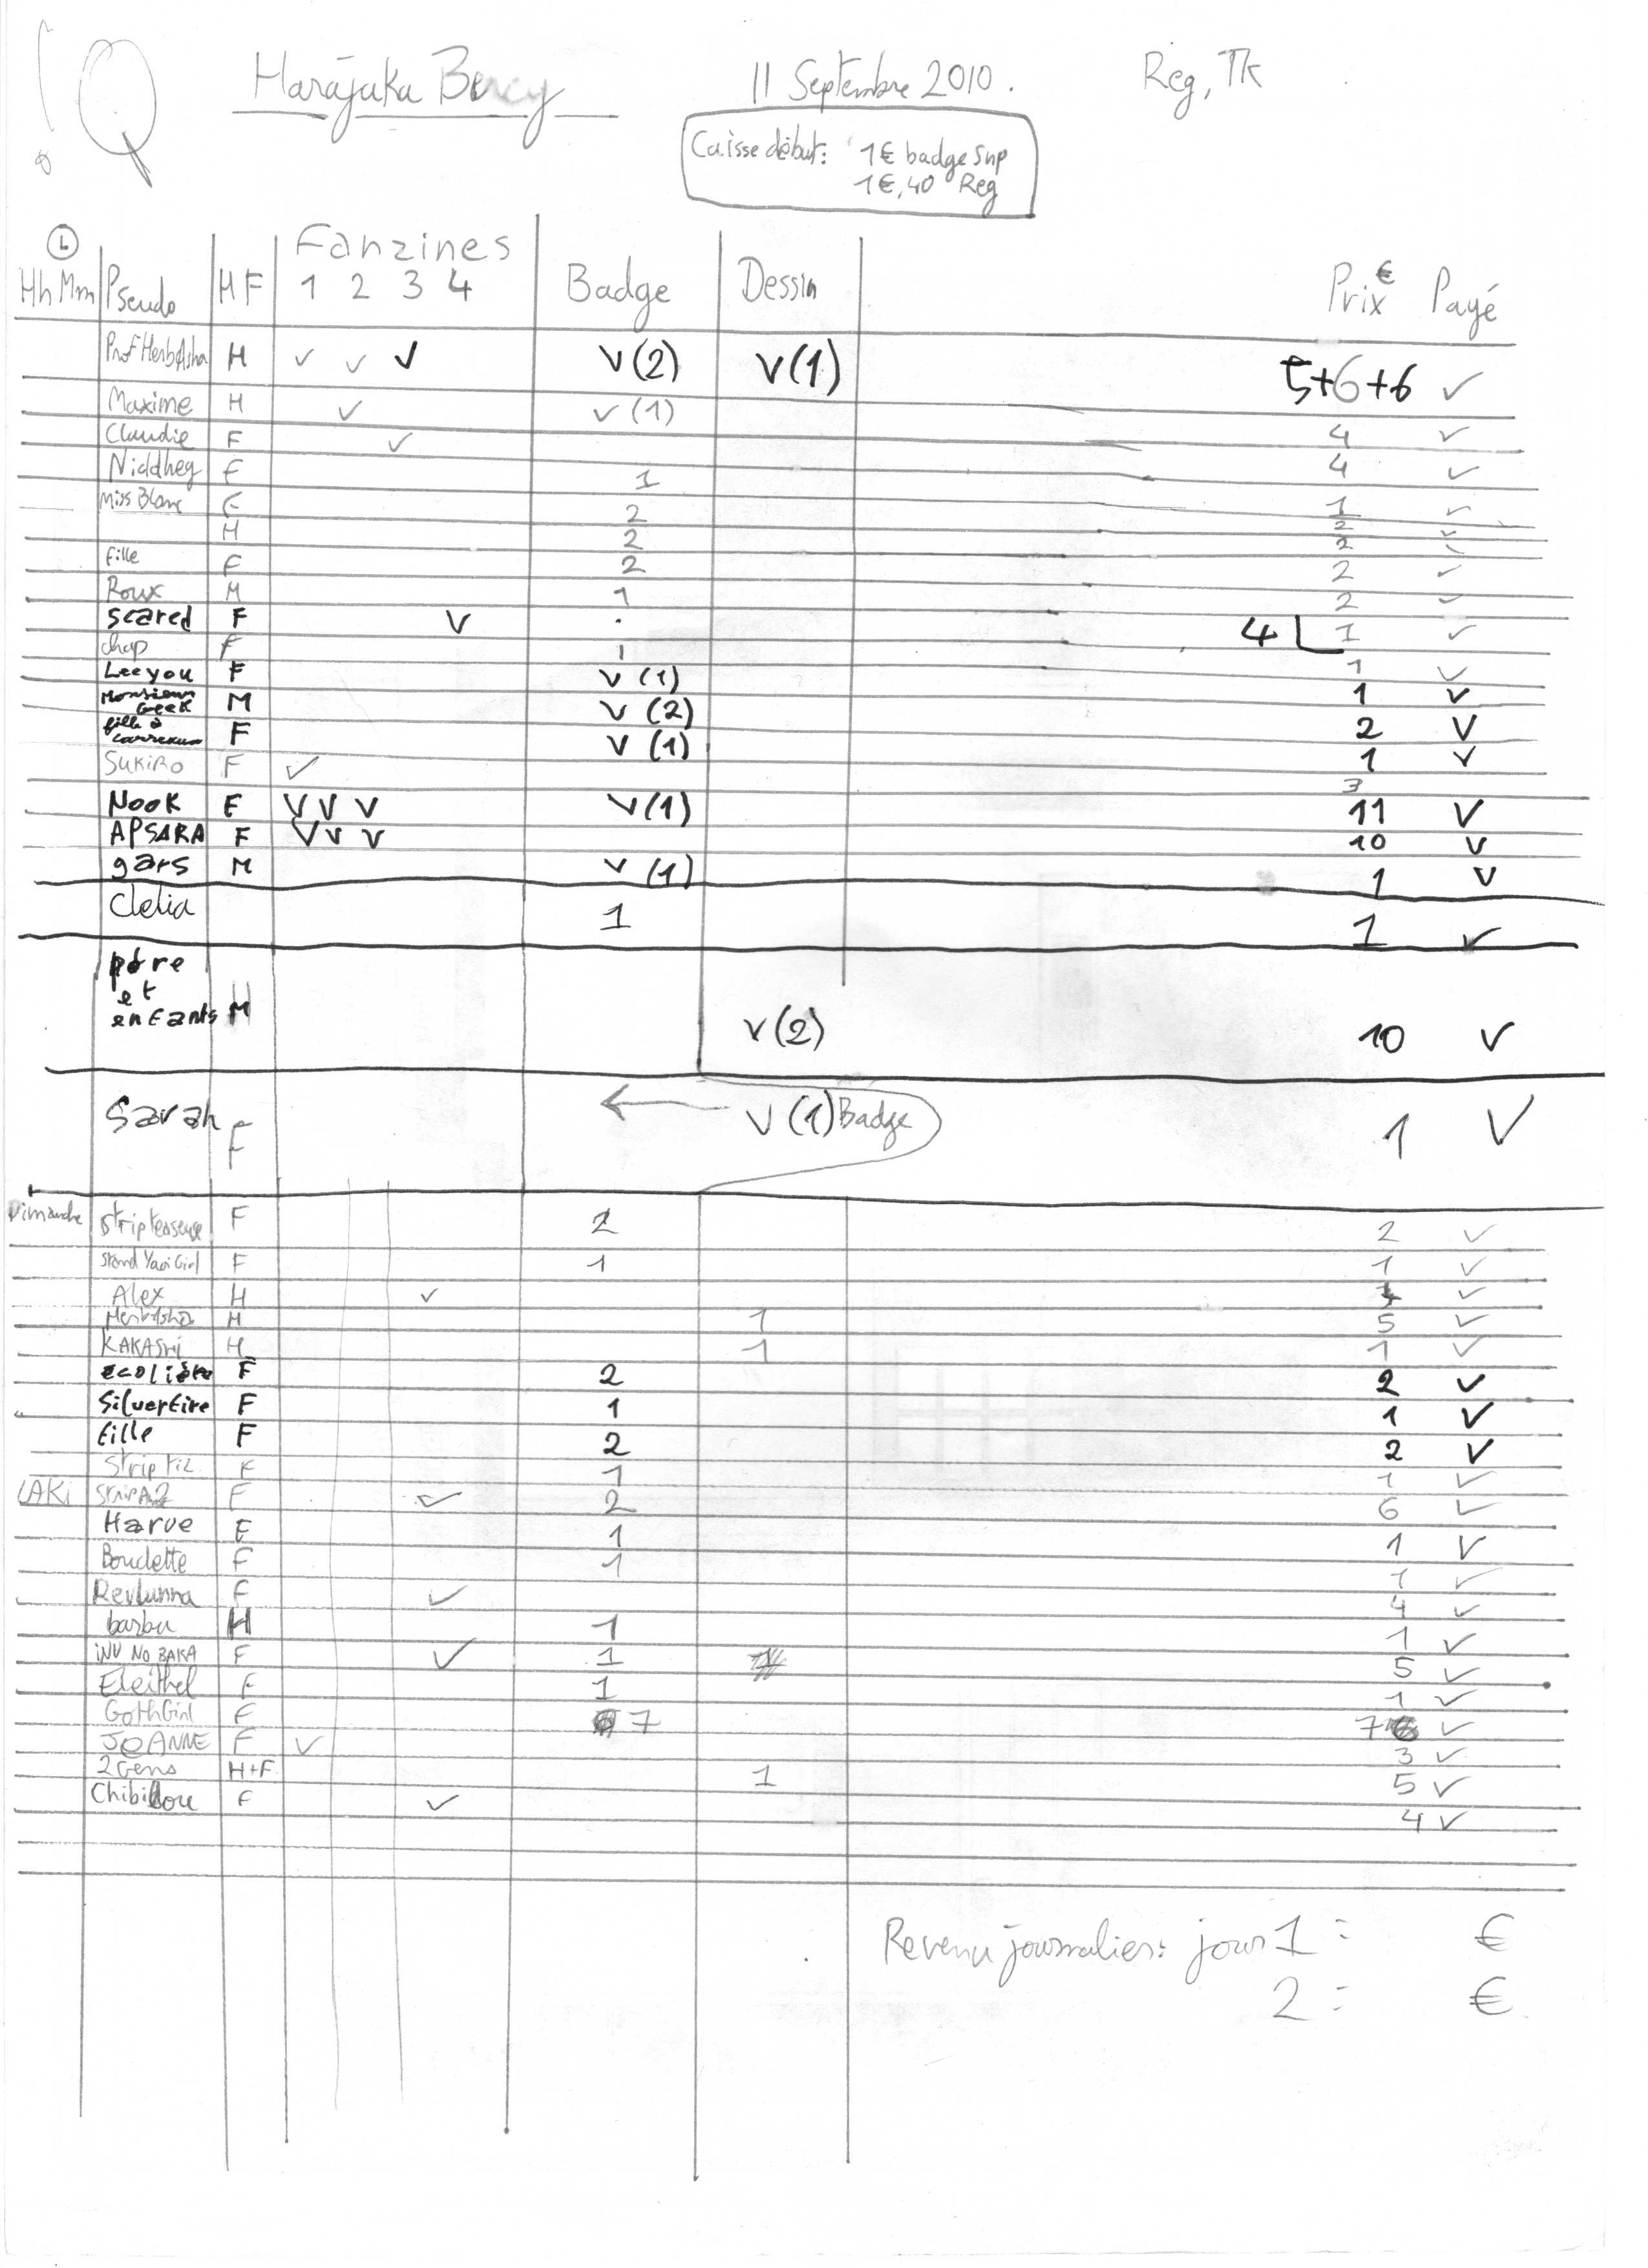 Q Harajuka Bercy 11 Septembre 2010. Reg, TK
Caisse début: 1€ badge Sup
1€,40 Reg
Fanzines
Hh Mm Pseudo H F 1 2 3 4 Badge Dessin Prix € Payé
Prof HerbAsha H ✓ ✓ ✓ V(2) V(1) 5+6+6 ✓
Maxime H ✓ ✓(1) 4 ✓
Claudie F ✓ 4 ✓
Niddheg F 1 1 ✓
Miss Blanc F 2 2 ✓
H 2 2 ✓
fille F 2 2 ✓
Roux M 1 2 ✓
scared F V 4 1 ✓
chap F 1 1 ✓
Leeyou F V (1) 1 V
Monsieur Geek M V (2) 2 V
fille à carreaux F V (1) 1 V
Sukiro F ✓ 3
Nook F V V V V(1) 11 V
APSARA F V V V 10 V
gars M V (1) 1 V
Clelia 1 1 ✓
père
et
enfants M V(2) 10 V
Sarah F V (1) Badge 1 V
Dimanche Stripteaseuse F 2 2 ✓
Stand Yaoi Girl F 1 1 ✓
Alex H ✓ ✓
HerbAsha H 1 5 ✓
KAKASHI H 1 1 ✓
écolière F 2 2 ✓
Silverfire F 1 1 ✓
fille F 2 2 ✓
Strip F 1 1 ✓
LAKi F ✓ 2 6 ✓
Harue F 1 1 V
Bouclette F 1 1 ✓
Revlunna F ✓ 4 ✓
barbu H 1 1 ✓
INU NO BAKA F ✓ 1 5 ✓
Eleithel F 1 1 ✓
GothGirl F 7 7 ✓
JeANNE F ✓ 3 ✓
2 Gens H+F 1 5 ✓
Chibillou F ✓ 4 ✓
Revenu journalier: jour 1 = €
2 = €